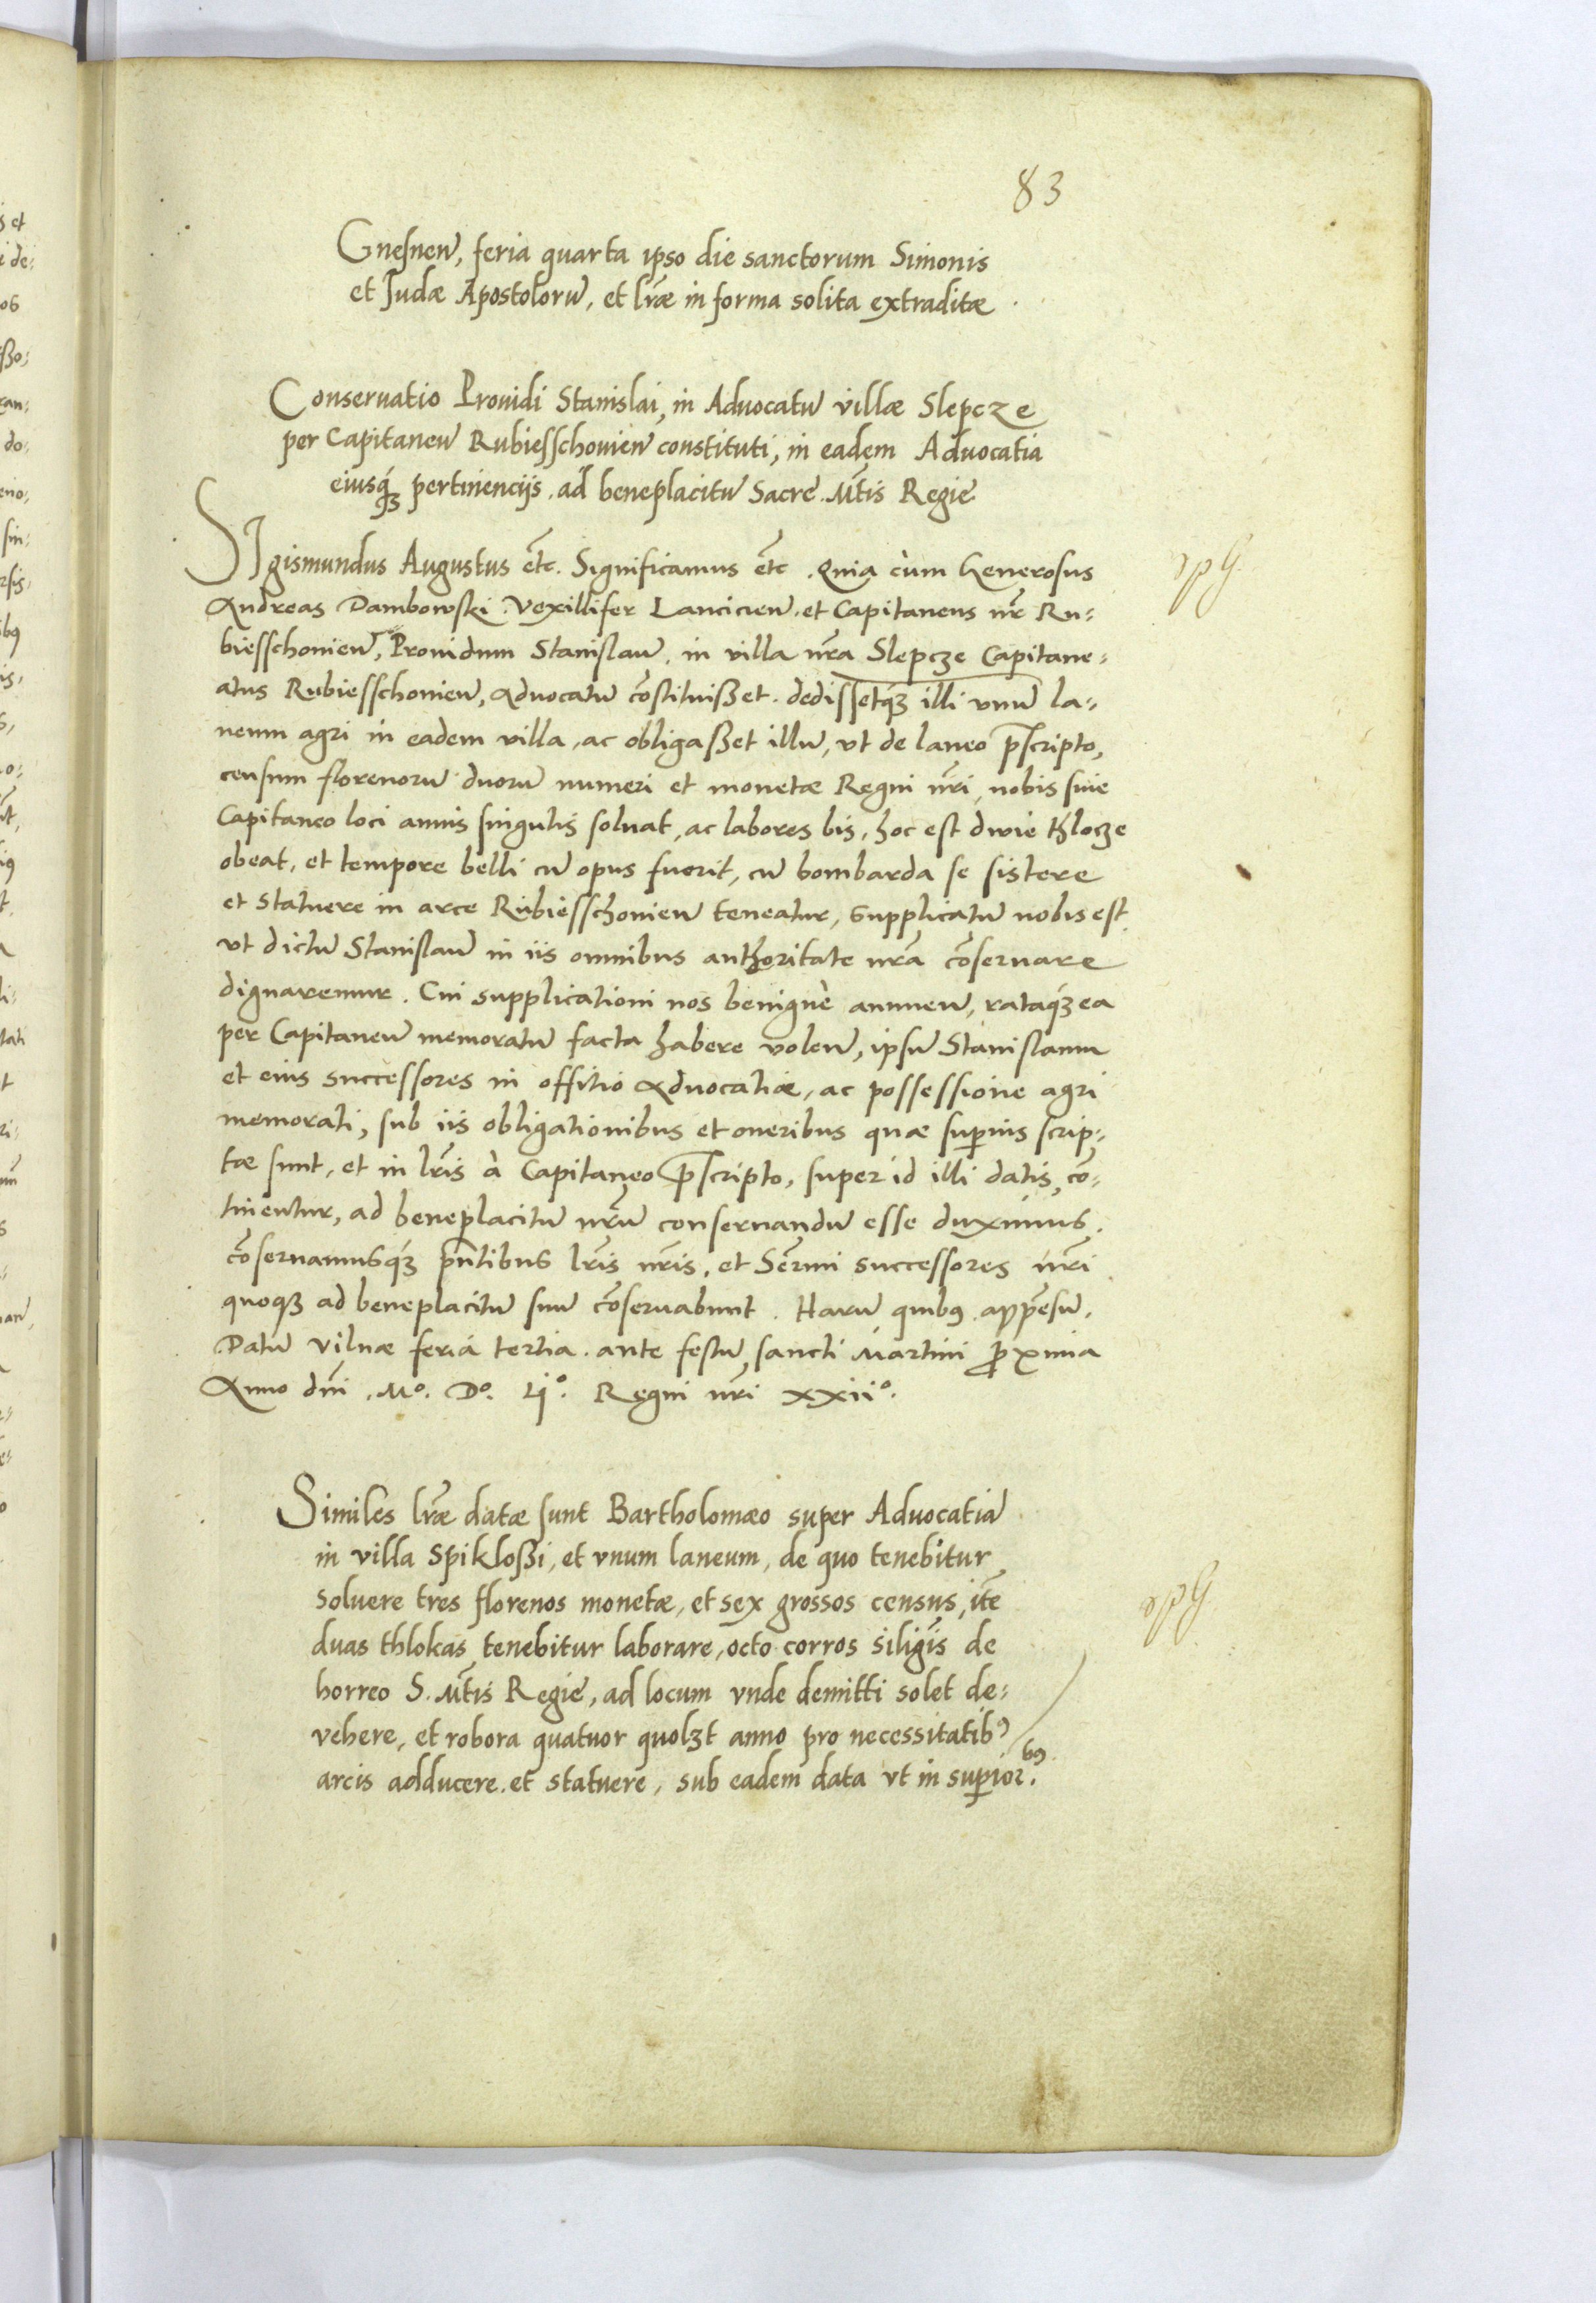 83
Gnesnen, feria quarta ipso die sanctorum Simonis
et Judæ Apostolorū, et lr̃æ in forma solita extraditæ.
Conseruatio Prouidi Stanislai, in Aduocatū villæ Slepcze
per Capitaneū Rubiesschouieñ constituti, in eadem Aduocatia
eiusq́ꝫ pertinencijs. ad beneplacitū Sacre. Mt̃is Regie
SIgismundus Augustus etc̃. Significamus etc̃. Quia cùm Generosus
Andreas Dambowski Vexillifer Lancicieñ. et Capitaneus nr̃ Ru-
biesschouieñ, Prouidum Stanislaū, in villa nr̃a Slepcze Capitane-
atus Rubiesschouieñ, Aduocatū cõstituißet. dedissetq́ꝫ illi vnū la-
neum agri in eadem villa, ac obligaßet illū, vt de laneo p̃scripto,
censum florenorū duorū numeri et monetæ Regni nr̃i, nobis siue
Capitaneo loci annis singulis soluat, ac labores bis, hoc est dwie thlocze
obeat, et tempore belli cū opus fuerit, cū bombarda se sistere
et statuere in arce Rubiesschouieñ teneatur, supplicatū nobis est
vt dictū Stanislaū in iis omnibus authoritate nr̃a cõseruare
dignaremur. Cui supplicationi nos benignè annueñ, rataq́ꝫ ea
per Capitaneū memoratū facta habere voleñ, ipsū Stanislaum
et eius successores in offitio Aduocatiæ, ac possessione agri
memorati, sub iis obligationibus et oneribus quæ superius scrip-
tæ sunt, et in lr̃is à Capitaneo p̃scripto, super id illi datis, cõ-
tinentur, ad beneplacitū nr̃ū conseruandū esse duximus.
cõseruamusq́ꝫ pñtibus lr̃is nr̃is, et Ser̃mi successores nr̃i
quoqꝫ ad beneplacitū suū cõseruabunt. Harū quibꝰ appẽsū.
Datū Vilnæ feria tertia. ante festū sancti Martini ꝓxima
Anno dñi. Mº. Dº. Ljº. Regni nr̃i xxiiº.
Similes lr̃æ datæ sunt Bartholomæo super Aduocatiā
in villa Spikloßi, et vnum laneum, de quo tenebitur
soluere tres florenos monetæ, et sex grossos census, itẽ
duas thlokas tenebitur laborare, octo corros siligĩs de
horreo S. Mt̃is Regie, ad locum vnde demitti solet de-
vehere, et robora quatuor quolꝫt anno pro necessitatibꝰ
arcis adducere. et statuere, sub eadem data vt in supior.bꝰ